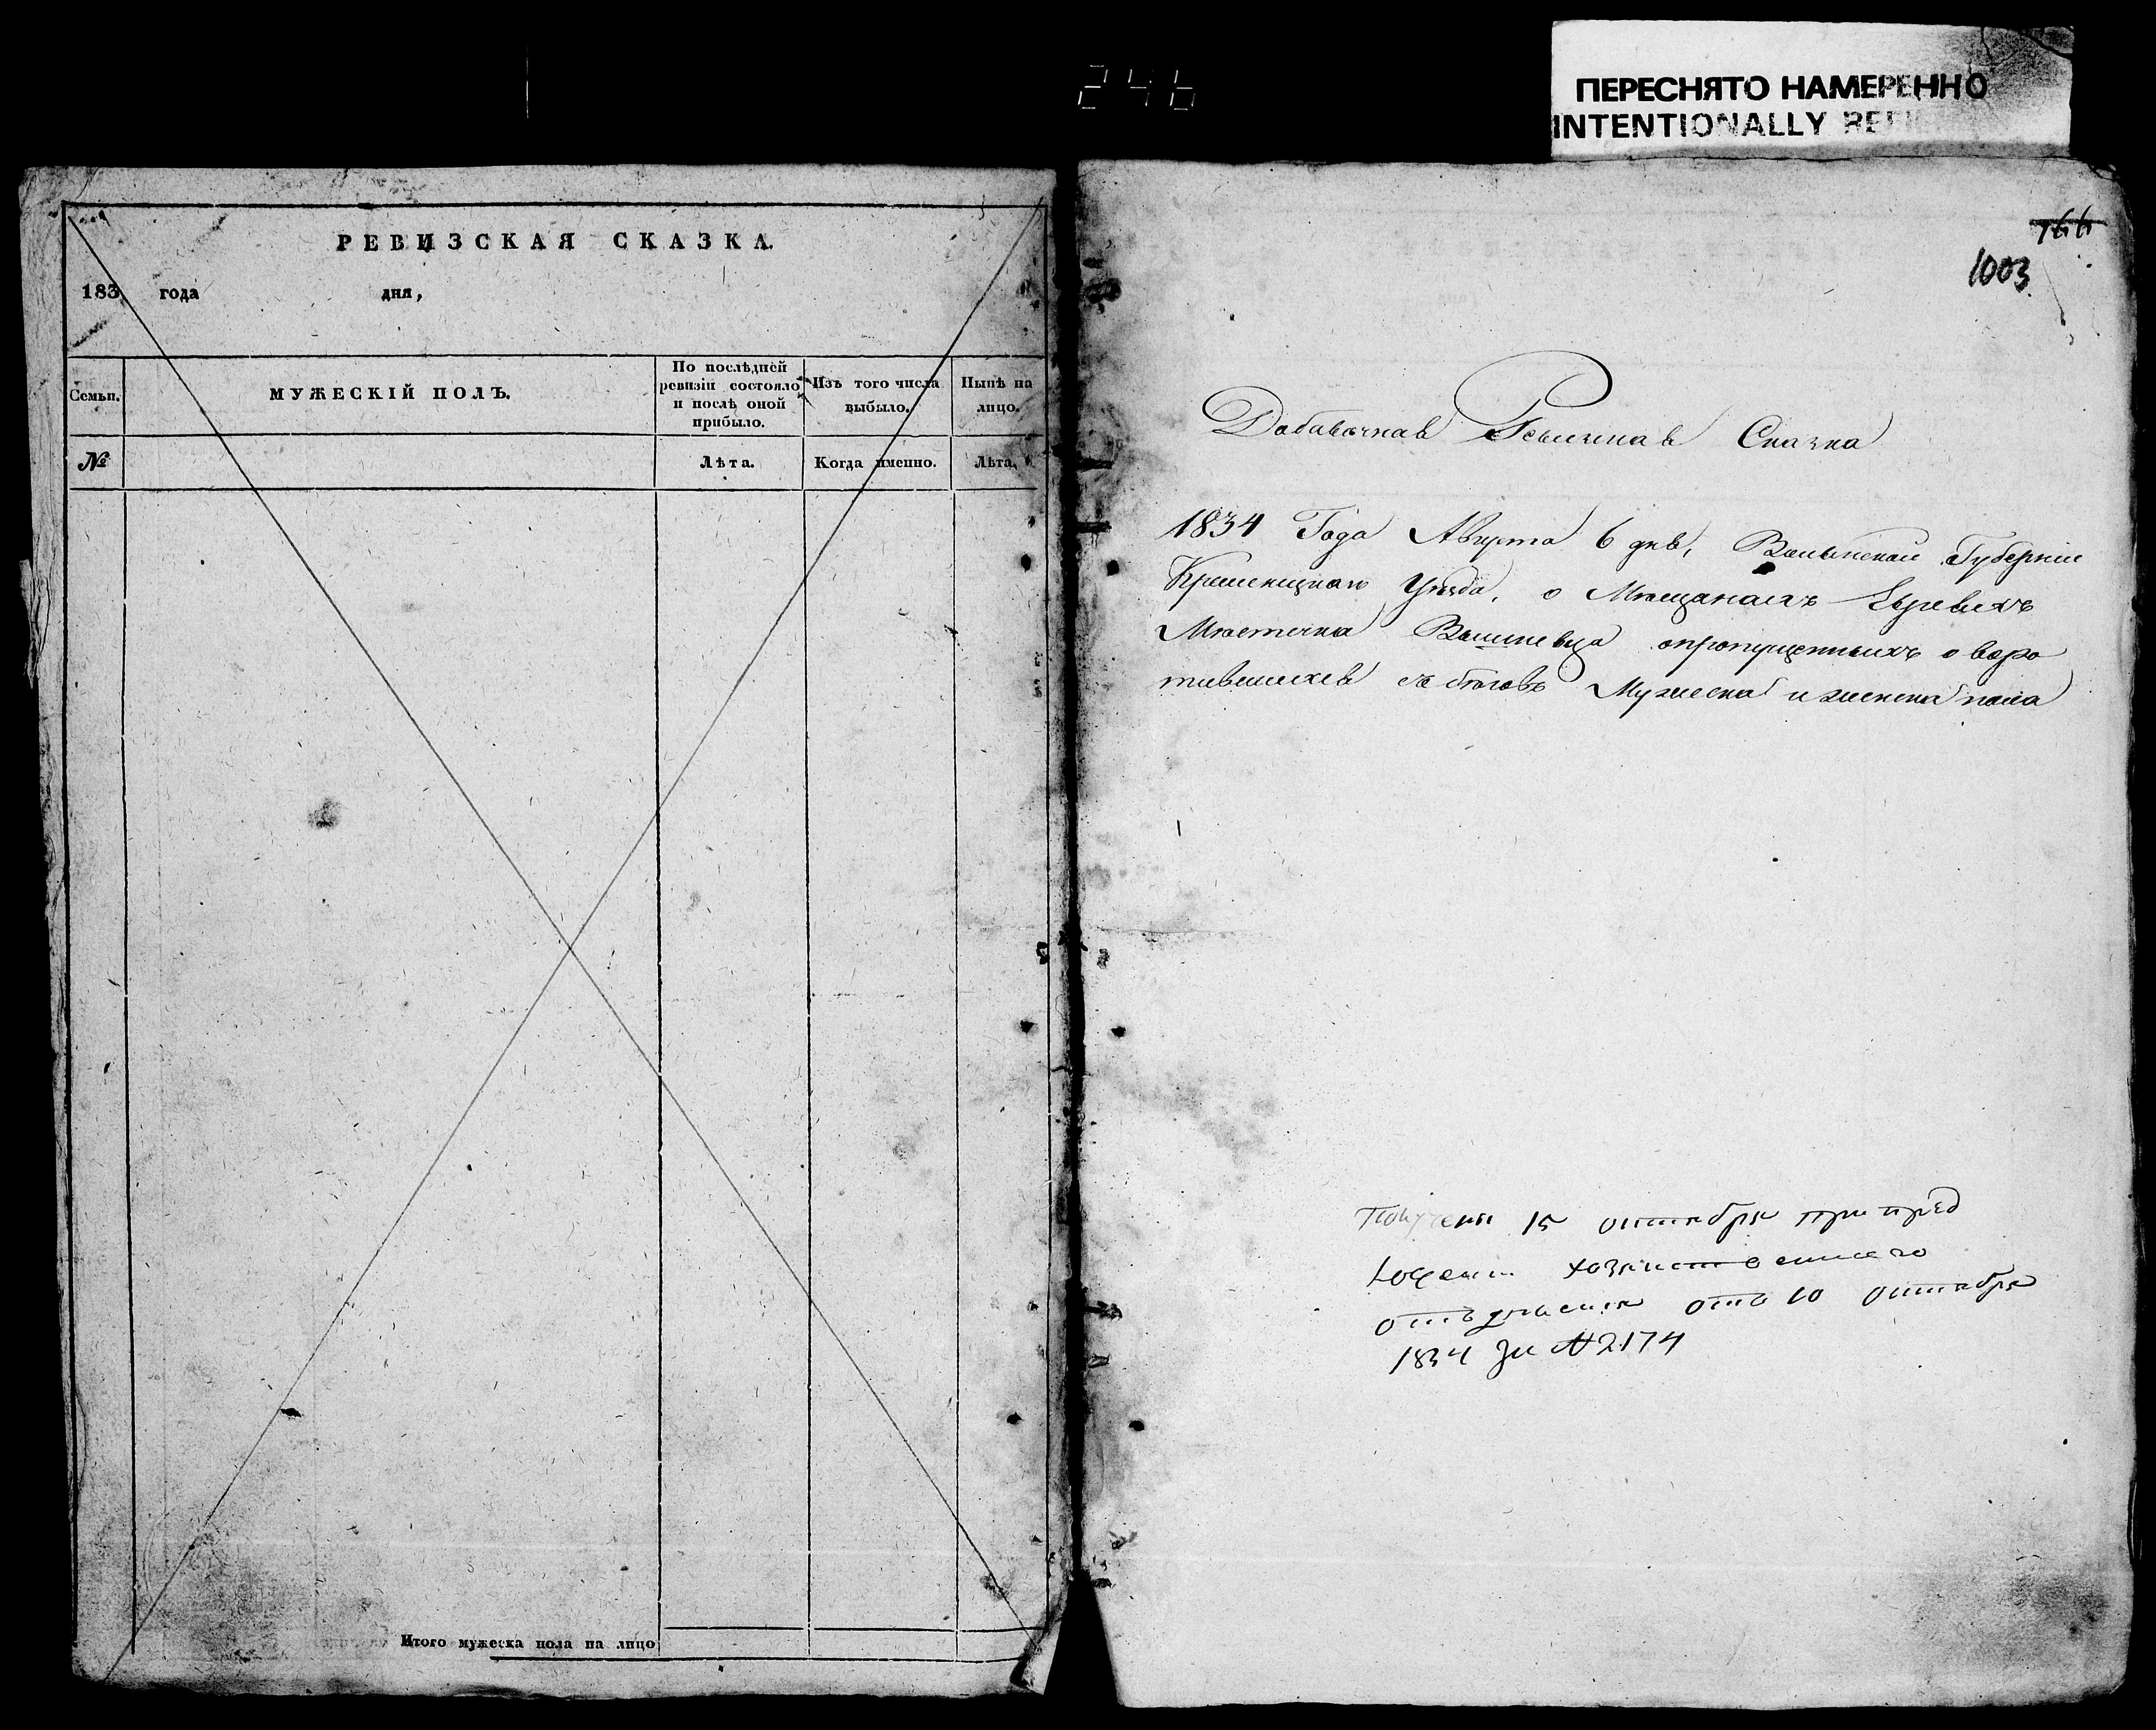 246
ПЕРЕСНЯТО НАМЕРЕННО
INTENTIONALLY
РЕВИЗСКАЯ СКАЗКА.
183 года дня,
Семьи.
МУЖЕСКІЙ ПОЛЪ.
По послѣдней
ревизіи состояло
и послѣ оной
прибыло.
Изъ того числа
выбыло.
Нынѣ на
лицо.
№
Лѣта.
Когда именно.
Лѣта.
Итого мужеска пола на лицо
166
1003
Добавочная Ревизкая Сказка
1834 Года Августа 6 дня, Волынской Губерніи
Кременецкаго Уезда, о Мещанахъ Евреяхъ
Местечка Вишневца опропущенныхъ о воро
тившихся съ беговъ Мужеска и женска пола
Получена 15 октября при пред
ложении хозяйственного
отъделения отъ 10 октября
1834 за №2174